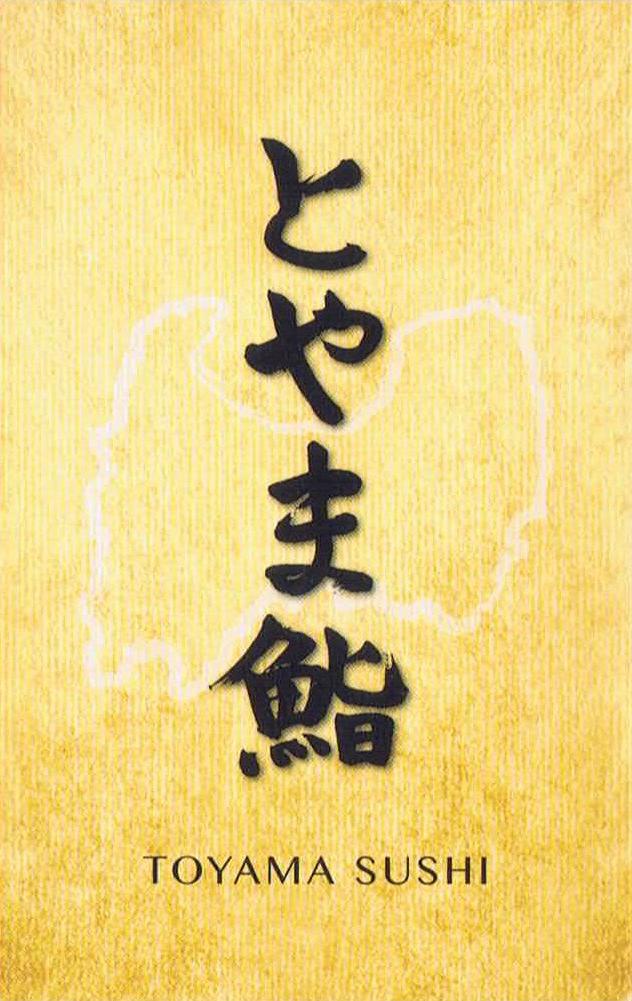 とやま鮨
TOYAMA SUSHI